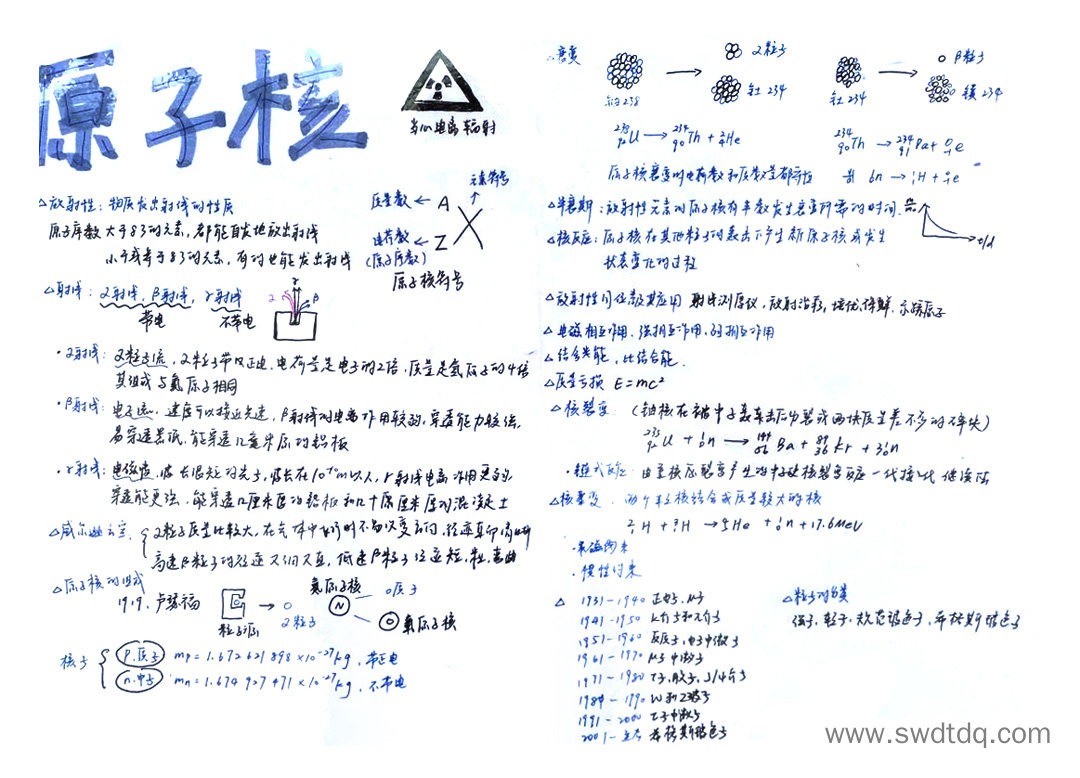 原子核
当心电离辐射
△放射性：物质发出射线的性质
原子序数大于83的元素，都能自发地放出射线
小于或等于83的元素，有的也能发出射线
元素符号
质量数 ← A
X
电荷数 ← Z
(原子序数)
原子核符号
△射线：α射线，β射线，γ射线
带电 不带电
α γ β
·α射线：α粒子流，α粒子带正电，电荷量是电子的2倍，质量是氢原子的4倍
其组成与氦原子相同
·β射线：电子流，速度可以接近光速，β射线的电离作用较弱，穿透能力较强，
易穿透黑纸，能穿透几毫米厚的铝板
·γ射线：电磁波，波长很短的光子，波长在10⁻¹⁰m以下，γ射线电离作用更弱，
穿透能更强，能穿透几厘米厚的铅板和几十厘米厚的混凝土
△威尔逊云室
α粒子质量比较大，在气体中飞行时不易改变方向，径迹直
高速β粒子的径迹又细又直，低速β粒子径迹短，粗，弯曲
△原子核的组成
1919，卢瑟福
粒子源
→ α粒子
氮原子核
N
质子
氧原子核
核子
p.质子 mp=1.672621898×10⁻²⁷kg，带正电
n.中子 mn=1.674927471×10⁻²⁷kg，不带电
△衰变
铀238
→ α粒子
钍234
钍234
→ β粒子
镤234
²³⁸₉₂U → ²³⁴₉₀Th + ⁴₂He
²³⁴₉₀Th → ²³⁴₉₁Pa + ⁰₋₁e
原子核衰变时电荷数和质量数都守恒
¹₀n → ¹₁H + ⁰₋₁e
△半衰期：放射性元素的原子核有半数发生衰变所需的时间.
t/d
△核反应：原子核在其他粒子的轰击下产生新原子核或发生
状态变化的过程
△放射性同位素及其应用 射线测厚仪，放射治疗，培优，保鲜，示踪原子
△电磁相互作用，强相互作用，弱相互作用
△结合能，比结合能.
△质量亏损 E=mc²
△核裂变：(铀核在被中子轰击后分裂成两块质量差不多的碎块)
²³⁵₉₂U + ¹₀n → ¹⁴⁴₅₆Ba + ⁸⁹₃₆Kr + 3¹₀n
·链式反应：由重核反裂变产生的中子使核裂变反应一代接一代继续
△核聚变：两个轻核结合成质量较大的核
²₁H + ³₁H → ⁴₂He + ¹₀n + 17.6MeV
·磁约束
·惯性约束
△ 1931-1940 正电子，μ子
1941-1950 K介子和π介子
1951-1960 反质子，电子中微子
1961-1970 μ子中微子
1971-1980 τ子，胶子，J/ψ介子
1981-1990 W和Z玻色子
1991-2000 τ子中微子
2001- 希格斯玻色子
△粒子的分类
强子，轻子，规范玻色子，希格斯玻色子
www.swdtdq.com